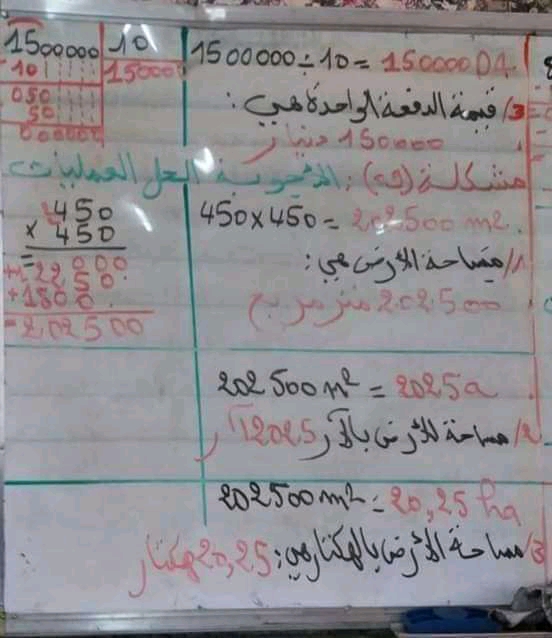 1500000 10
10 15000
050
50
000000
1500000 ÷ 10 = 150000 DA
3/ قيمة الدفعة الواحدة هي:
150000 دينار
مشكلة (هـ): الأجوبة الحل العمليات
450
× 450
= 000
+ 2250.
+ 1800.
= 202500
450 × 450 = 202500 m2
1/ مساحة الأرض هي:
202500 متر مربع
202500 m² = 2025a
2/ مساحة الأرض بالآر 2025 آر
202500 m² = 20,25 ha
3/ مساحة الأرض بالهكتار هي: 20,25 هكتار